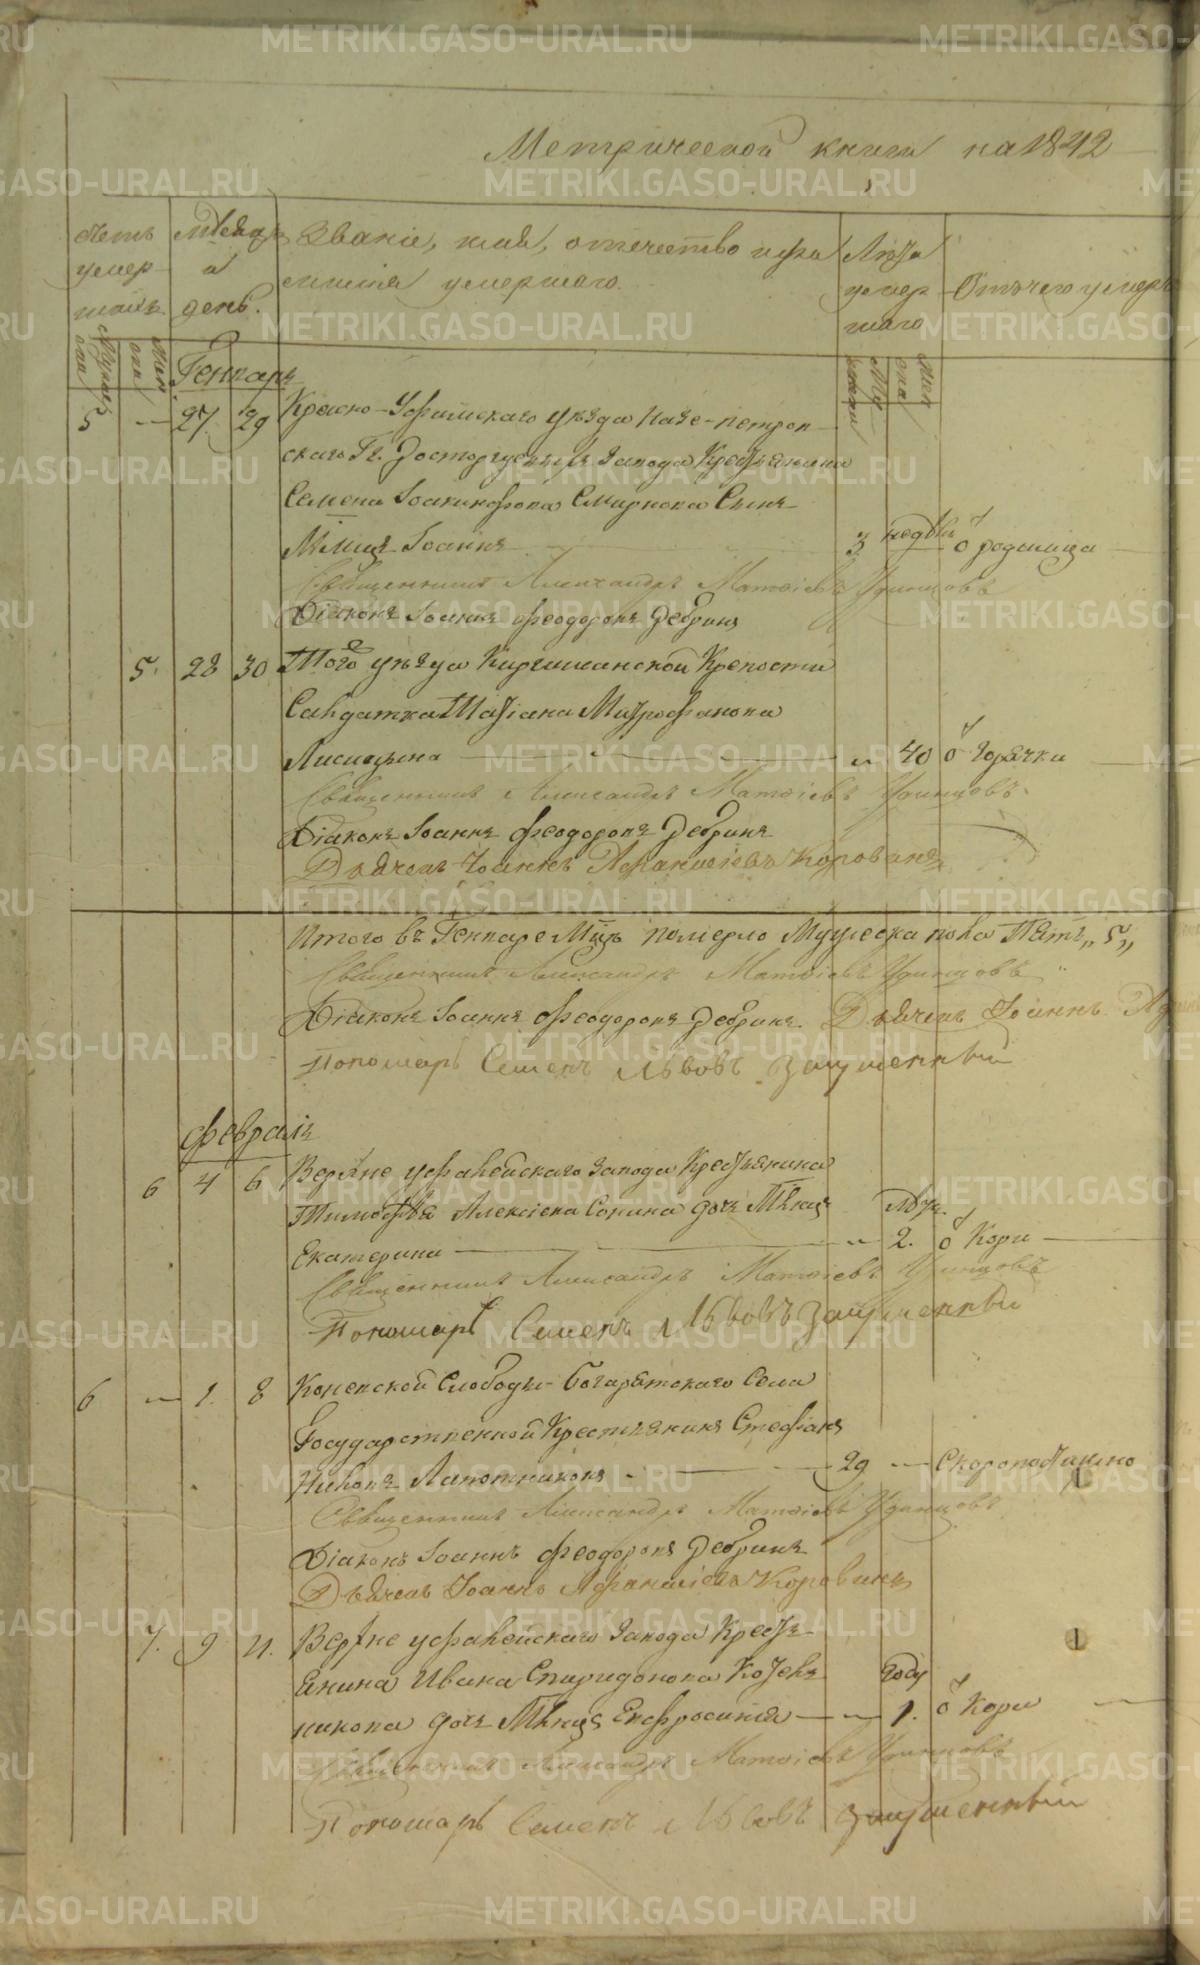 Метрической книги на 1842
Счетъ умер-шихъ.
Мѣсяцъ и день.
Званіе, имя, отчество и фамилія умершаго.
Лѣта умершаго
Отъ чего умеръ
Генварь
5 — 27. 29 Красно-Уфимскаго уѣзда Нязе-петров-
скаго Гг. Расторгуевыхъ завода Крестьянина
Семена Іоакинфова Смирнова Сынъ
Мл-цъ Іоаннъ 3 недѣли ѿ родимца
Священникъ Александръ Матѳіевъ Удинцовъ
Діаконъ Іоаннъ Феодоровъ Дебринъ
5. 28 30 Того уѣзда Киргишанской Крепости
Салдатка Татіана Митрофанова
Лисицына — „ 40 ѿ Горячки
Священникъ Александръ Матѳіевъ Удинцовъ
Діаконъ Іоаннъ Феодоровъ Дебринъ
Дьячекъ Іоаннъ Афанасіевъ Коровинъ
Итого въ Генваре М-цѣ померло Мужеска пола Пять „5„
Священникъ Александръ Матѳіевъ Удинцовъ
Діаконъ Іоаннъ Феодоровъ Дебринъ. Дьячекъ Іоаннъ
Пономарь Семенъ Львовъ
Февраль
6 4 6 Верхне уфалейскаго завода Крестьянина
Тимоѳѣя Алексіева Сонина дочь Мл-ца
Екатерина — „ 2. ѿ Кори
Священникъ Александръ Матѳіевъ Удинцовъ
Пономарь Семенъ Львовъ
6 — 1. 8 Коневской Слободы Богарятскаго Села
Государственной Крестьянинъ Стефанъ
Лапотниковъ — 29 — Скоропостижно
Священникъ Александръ Матѳіевъ Удинцовъ
Діаконъ Іоаннъ Феодоровъ Дебринъ
Дьячекъ Іоаннъ Афанасіевъ Коровинъ
7. 9 11. Верхне уфалейскаго завода Кресть-
янина Ивана Спиридонова Кожев-
никова дочь Мл-ца Евфросинія — „ Году 1. ѿ Кори
Священникъ Александръ Матѳіевъ Удинцовъ
Пономарь Семенъ Львовъ
METRIKI.GASO-URAL.RU